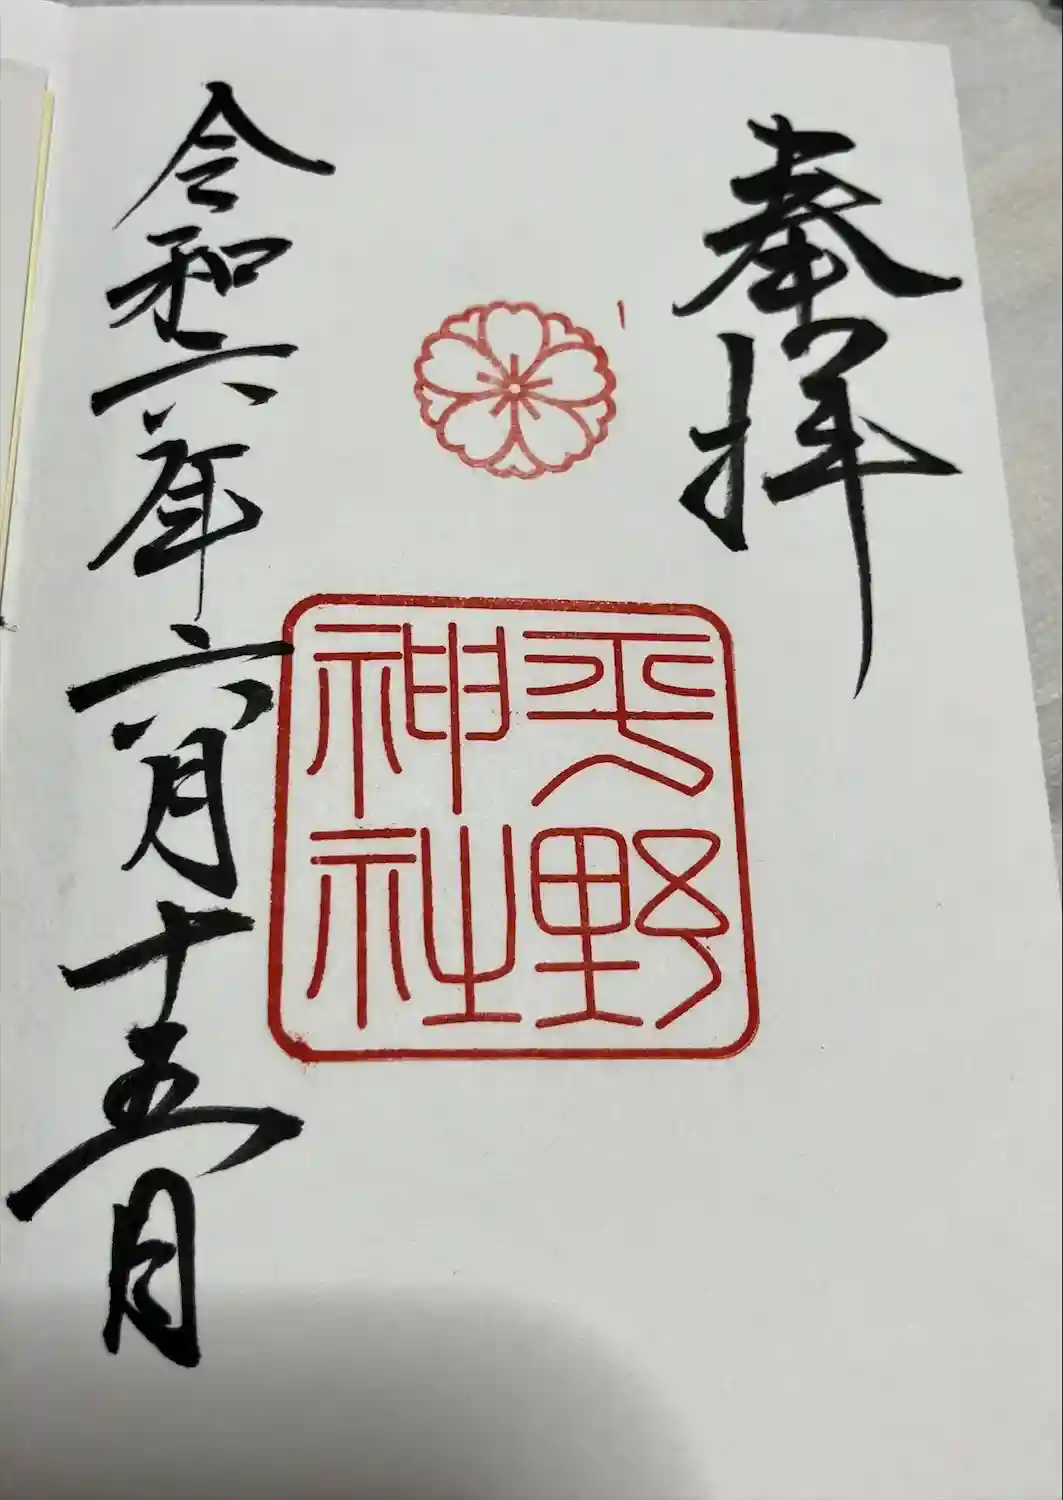 奉拝
平野神社
令和六年六月十五日